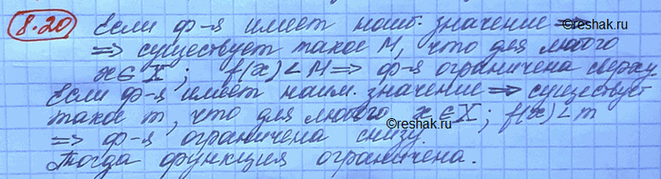 8.20 Если ф-я имеет наиб. значение ⇒
⇒ существует такое М, что для любого
x∈X; f(x)<M ⇒ ф-я ограничена сверху
Если ф-я имеет наим. значение ⇒ существует
такое m, что для любого x∈X; f(x)<m
⇒ ф-я ограничена снизу.
Тогда функция ограничена.
©reshak.ru
©reshak.ru